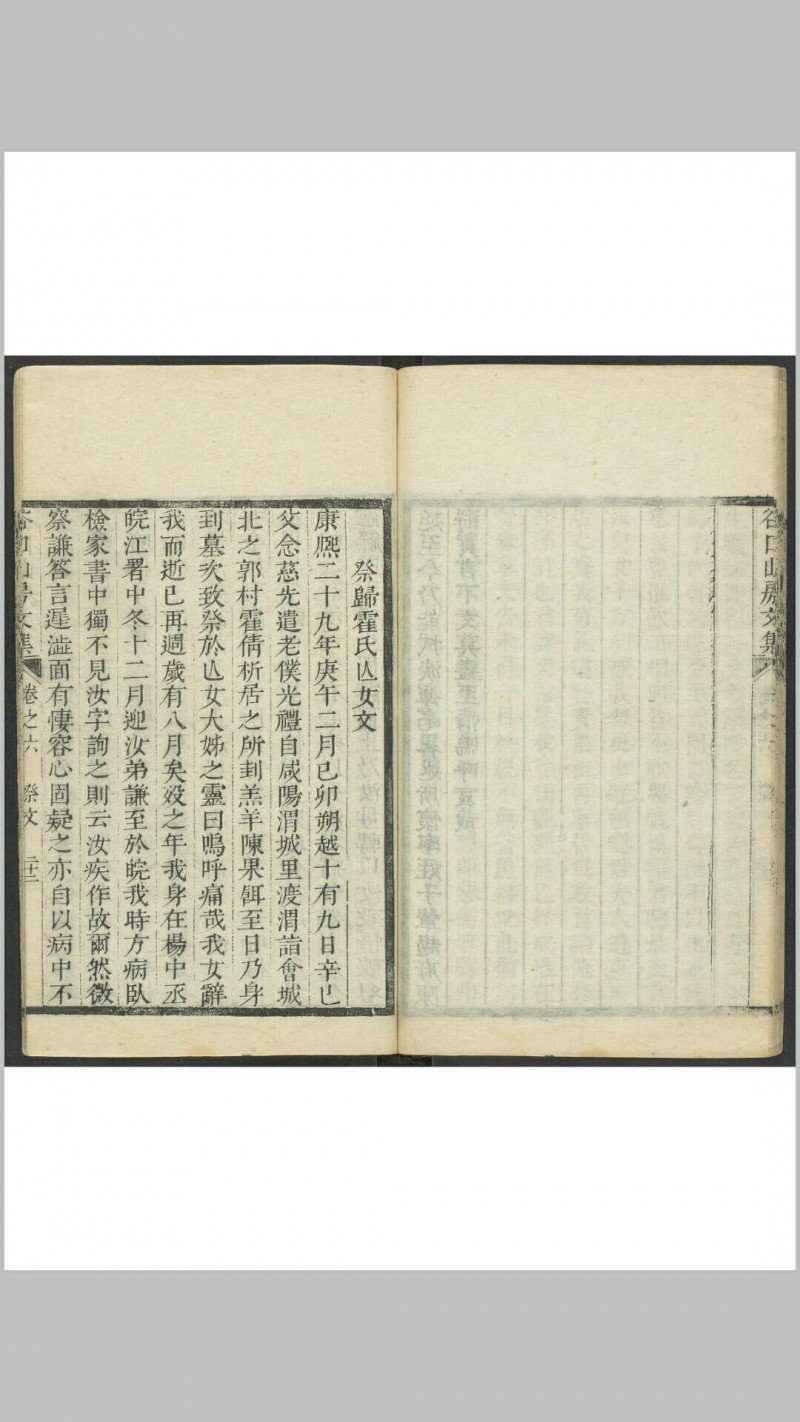 谷口山房文集
祭歸霍氏亾女文
康熈二十九年庚午二月己卯朔越十有九日辛巳
父念慈先遣老僕光禮自咸陽渭城里渡渭詣會城
北之郭村霍倩析居之所刲羔羊陳果餌至日乃身
到墓次致祭於亾女大姊之靈曰嗚呼痛哉我女辭
我而逝已再週歲有八月矣歿之年我身在楊中丞
皖江署中冬十二月迎汝弟謙至於皖我時方病臥
檢家書中獨不見汝字詢之則云汝疾作故爾然微
察謙答言遲澁面有悽容心固疑之亦自以病中不
谷口山房文集 卷之六 祭文 二十二